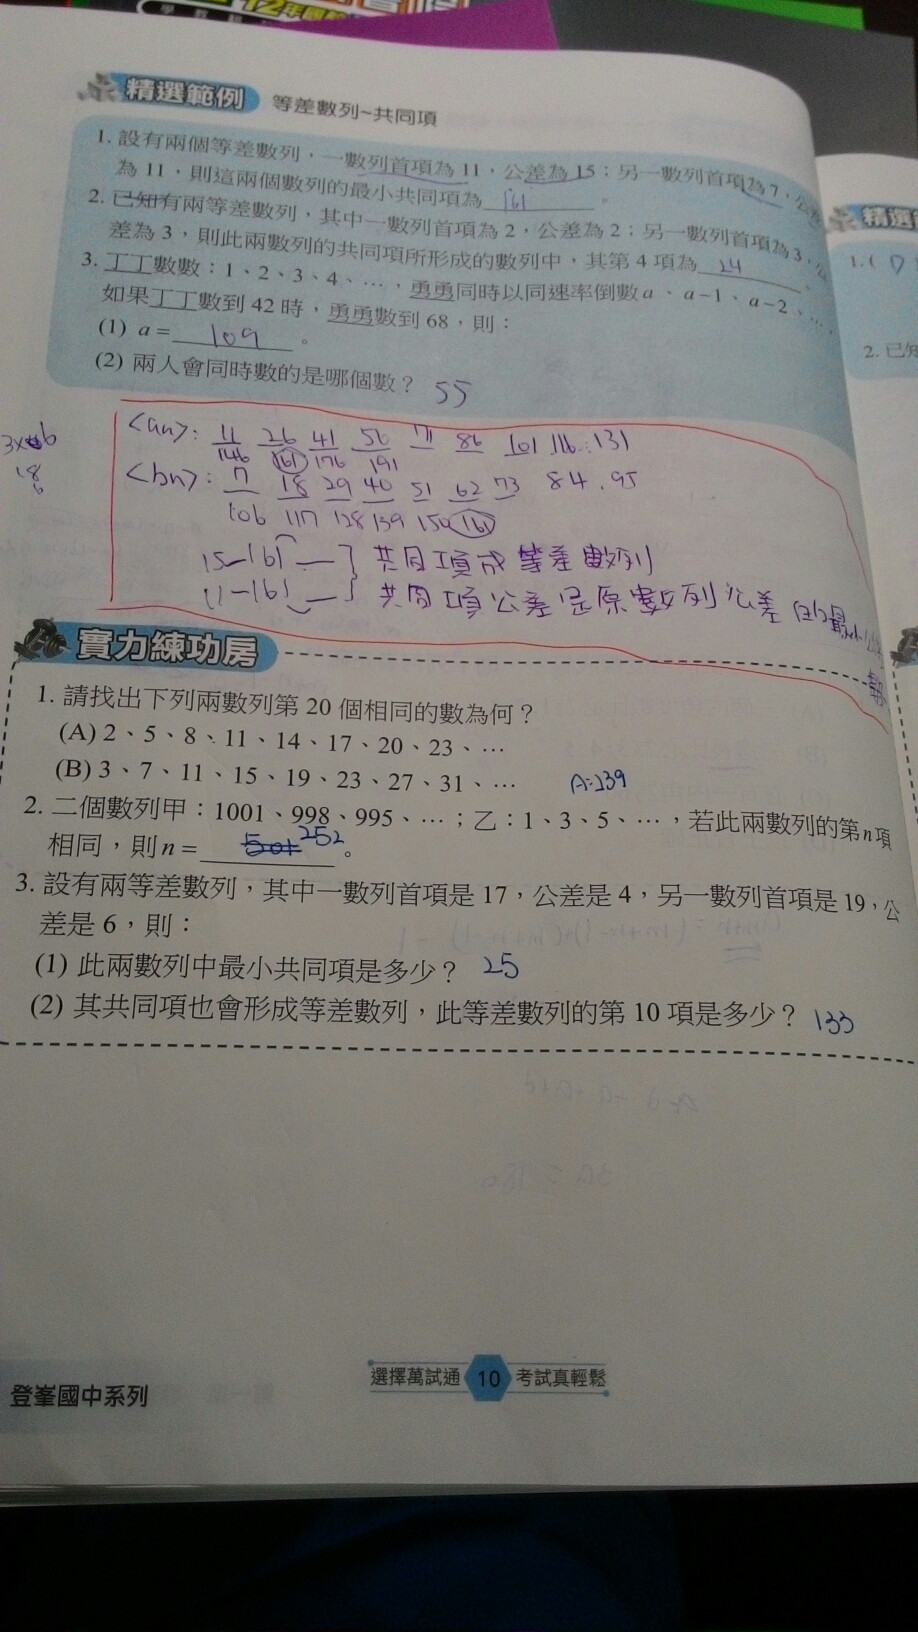 12年國
精選範例 等差數列~共同項
1. 設有兩個等差數列，一數列首項為 11，公差為 15；另一數列首項為 7，公
為 11，則這兩個數列的最小共同項為 161 。
2. 已知有兩等差數列，其中一數列首項為 2，公差為 2；另一數列首項為 3，公
差為 3，則此兩數列的共同項所形成的數列中，其第 4 項為 24
3. 丁丁數數：1、2、3、4、…，勇勇同時以同速率倒數 a、a−1、a−2、…，
如果丁丁數到 42 時，勇勇數到 68，則：
(1) a = 109 。
(2) 兩人會同時數的是哪個數？ 55
<an>: 11 26 41 56 71 86 101 116 131
146 161 176 191
<bn>: 7 18 29 40 51 62 73 84 . 95
106 117 128 139 150 161
15—161— ] 共同項成等差數列
11—161— ] 共同項公差是原數列公差的最小公
18
6
實力練功房
1. 請找出下列兩數列第 20 個相同的數為何？
(A) 2、5、8、11、14、17、20、23、…
(B) 3、7、11、15、19、23、27、31、… A:239
2. 二個數列甲：1001、998、995、…；乙：1、3、5、…，若此兩數列的第 n 項
相同，則 n = 501 252 。
3. 設有兩等差數列，其中一數列首項是 17，公差是 4，另一數列首項是 19，公
差是 6，則：
(1) 此兩數列中最小共同項是多少？ 25
(2) 其共同項也會形成等差數列，此等差數列的第 10 項是多少？ 133
登峯國中系列
選擇萬試通 10 考試真輕鬆
精選
1. (
2. 已知